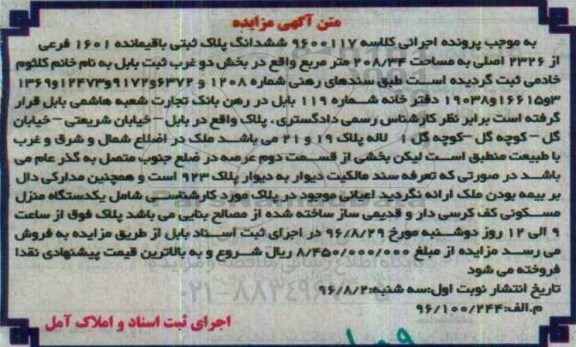 متن آگهی مزایده
به موجب پرونده اجرائی کلاسه ۹۶۰۰۱۱۷ ششدانگ پلاک ثبتی باقیمانده ۱۶۰۱ فرعی
از ۲۳۲۶ اصلی به مساحت ۲۰۸/۳۴ متر مربع واقع در بخش دو غرب ثبت بابل به نام خانم کلثوم
خادمی ثبت گردیده است طبق سندهای رهنی شماره ۱۲۰۸ و ۶۳۷۲و۹۱۷۴و۱۲۴۷۳و۱۳۶۹
۳و۱۶۶۱۵و۱۹۰۳۸ دفتر خانه شماره ۱۱۹ بابل در رهن بانک تجارت شعبه هاشمی بابل قرار
گرفته است برابر نظر کارشناس رسمی دادگستری، پلاک واقع در بابل – خیابان شریعتی – خیابان
گل – کوچه گل –کوچه گل ۱ لاله پلاک ۱۹ و ۲۱ می باشد ملک در اضلاع شمال و شرق و غرب
با طبیعت منطبق است لیکن بخشی از قسمت دوم عرصه در ضلع جنوب متصل به گذر عام می
باشد در صورتی که تعرفه سند مالکیت دیوار به دیوار پلاک ۹۲۳ است و همچنین مدارکی دال
بر بیمه بودن ملک ارائه نگردید اعیانی موجود در پلاک مورد کارشناسی شامل یکدستگاه منزل
مسکونی کف کرسی دار و قدیمی ساز ساخته شده از مصالح بنایی می باشد پلاک فوق از ساعت
۹ الی ۱۲ روز دوشنبه مورخ ۹۶/۸/۲۹ در اجرای ثبت اسناد بابل از طریق مزایده به فروش
می رسد مزایده از مبلغ ۸/۴۵۰/۰۰۰/۰۰۰ ریال شروع و به بالاترین قیمت پیشنهادی نقدا
فروخته می شود
تاریخ انتشار نوبت اول:سه شنبه:۹۶/۸/۲
م.الف:۹۶/۱۰۰/۲۴۴
اجرای ثبت اسناد و املاک آمل